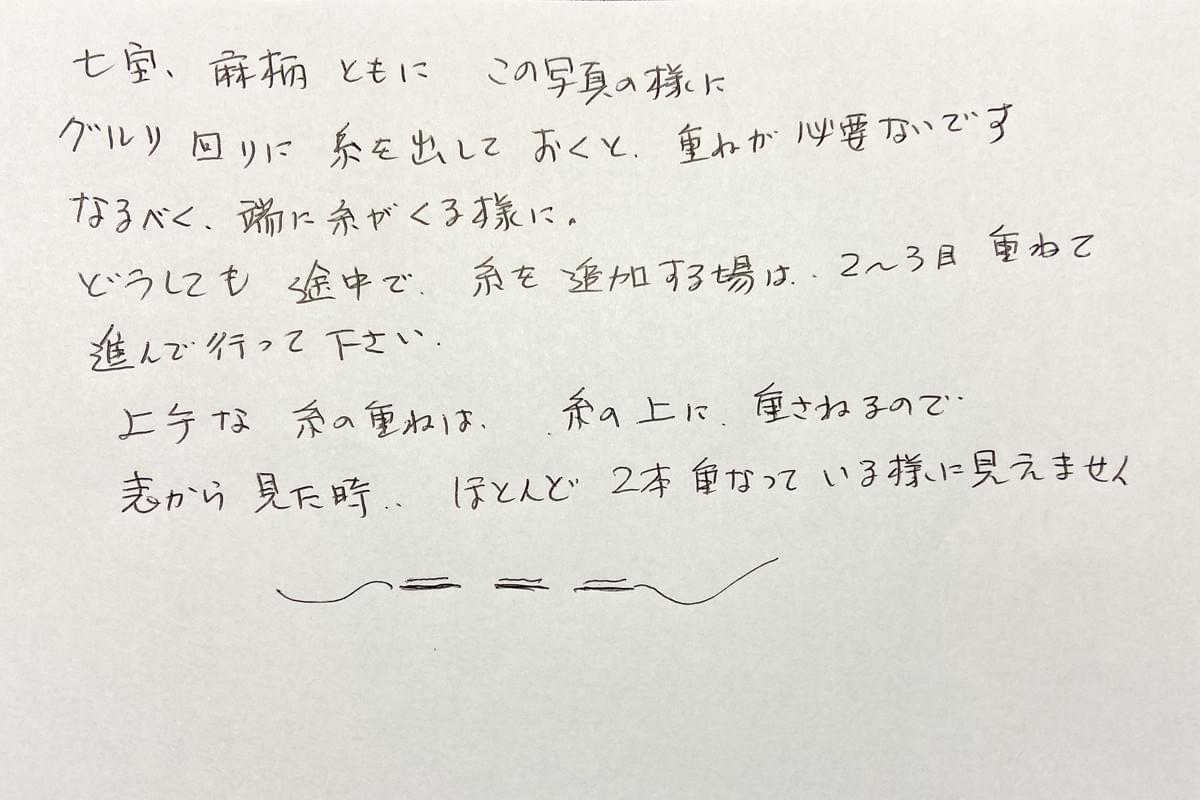 七宝、麻柄 ともに この写真の様に
グルリ 回りに 糸を出して おくと、重ねが 必要ないです
なるべく、端に糸がくる様に。
どうしても 途中で、糸を 追加する場は、2〜3目 重ねて
進んで行って下さい.
上手な 糸の重ねは、糸の上に、重さねるので
表から 見た時、ほとんど 2本重なって いる様に見えません